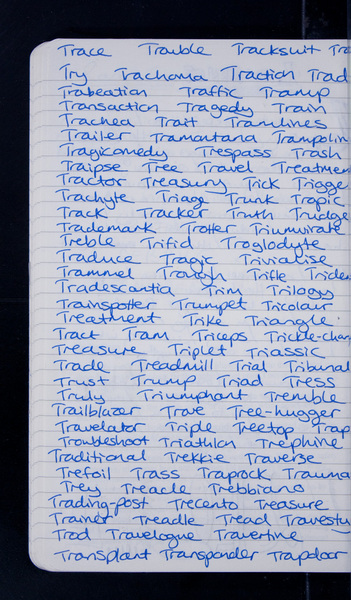 Trace Trouble Tracksuit Tra
Try Trachoma Traction Trad
Trabeation Traffic Tramp
Transaction Tragedy Train
Trachea Trait Tramlines
Trailer Tramontana Trampolin
Tragicomedy Trespass Trash
Traipse Tree Travel Treatmen
Tractor Treasury Trick Trigge
Trachyte Triage Trunk Tropic
Track Tracker Truth Trudge
Trademark Trotter Triumvirate
Treble Trifid Troglodyte
Traduce Tragic Trivialise
Trammel Trough Trifle Triden
Tradescantia Trim Trilogy
Trainspotter Trumpet Tricolour
Treatment Trike Triangle
Tract Tram Triceps Trickle-char
Treasure Triplet Triassic
Trade Treadmill Trial Tribunal
Trust Trump Triad Tress
Truly Triumphant Tremble
Trailblazer Trove Tree-hugger
Travelator Triple Treetop Trap
Troubleshoot Triathlon Trephine
Traditional Trekkie Traverse
Trefoil Trass Traprock Trauma
Trey Treacle Trebbiano
Trading-post Trecento Treasure
Trainer Treadle Tread Travesty
Trod Travelogue Travertine
Transplant Transponder Trapdoor